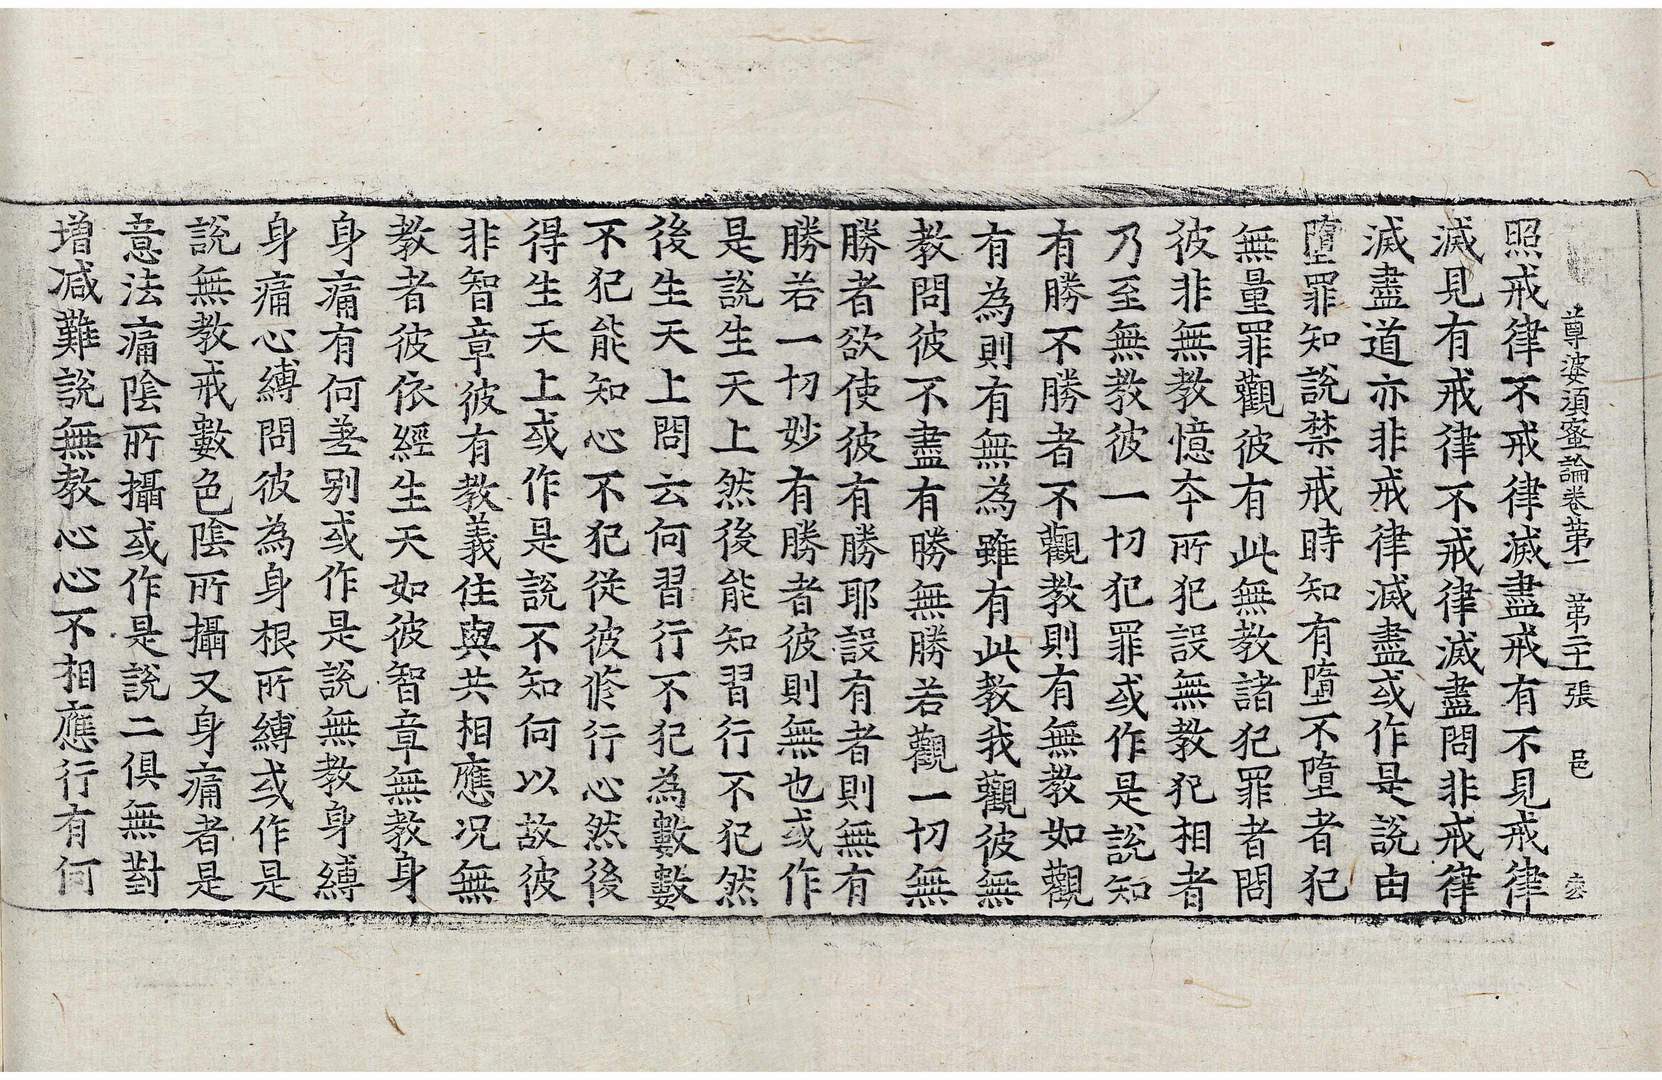 尊婆須蜜論卷第一　第二十張　邑
照戒律不戒律滅盡戒有不見戒律
滅見有戒律不戒律滅盡問非戒律
滅盡道亦非戒律滅盡或作是說由
墮罪知說禁戒時知有墮不墮者犯
無量罪觀彼有此無教諸犯罪者問
彼非無教憶本所犯設無教犯相者
乃至無教彼一切犯罪或作是說知
有勝不勝者不觀教則有無教如觀
有為則有無為雖有此教我觀彼無
教問彼不盡有勝無勝若觀一切無
勝者欲使彼有勝耶設有者則無有
勝若一切妙有勝者彼則無也或作
是說生天上然後能知習行不犯然
後生天上問云何習行不犯為數數
不犯能知心不犯從彼修行心然後
得生天上或作是說不知何以故彼
非智章彼有教義住與共相應況無
教者彼依經生天如彼智章無教身
身痛有何差别或作是說無教身縛
身痛心縛問彼為身根所縛或作是
說無教戒數色陰所攝又身痛者是
意法痛陰所攝或作是說二俱無對
增減難說無教心心不相應行有何